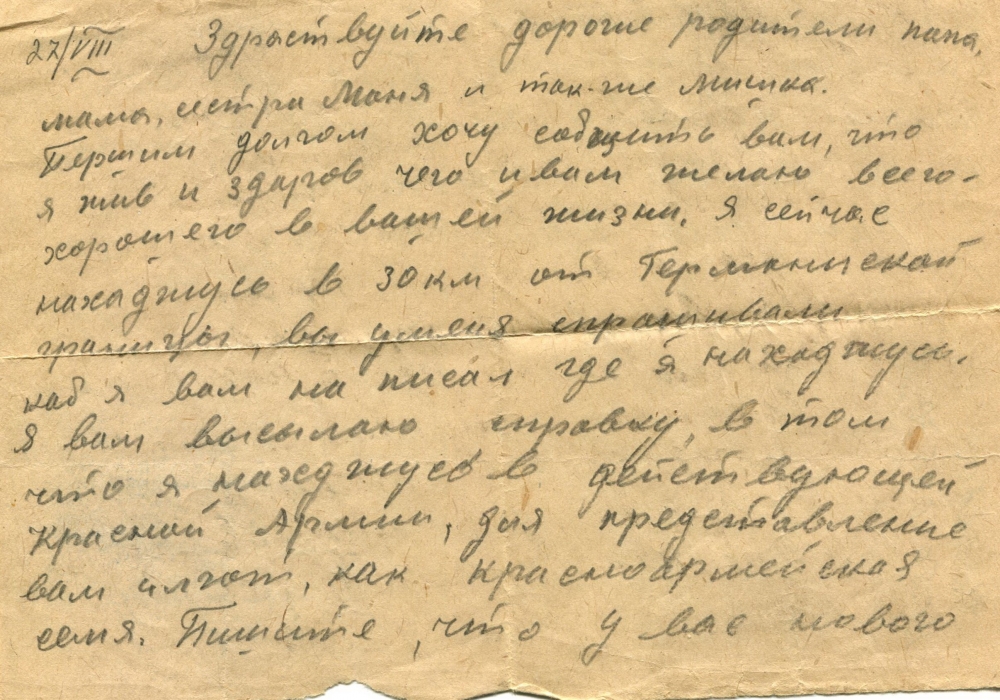 27/VIII Здраствуйте дорогие родители папа,
мама, сестра Маня и так-же Мишка.
Первим долгом хочу собщить вам, что
я жив и здаров чего и вам желаю всего-
хорошего в вашей жизни. Я сейчас
нахаджусь в 30 км от Германиской
границы, вы у меня спрашивали
каб я вам написал где я нахаджусь.
Я вам высылаю справку, в том
что я нахаджусь в действующей
Красной Армии, для предетавление
вам илгот, как красноармейская
семя. Пишите, что у вас нового